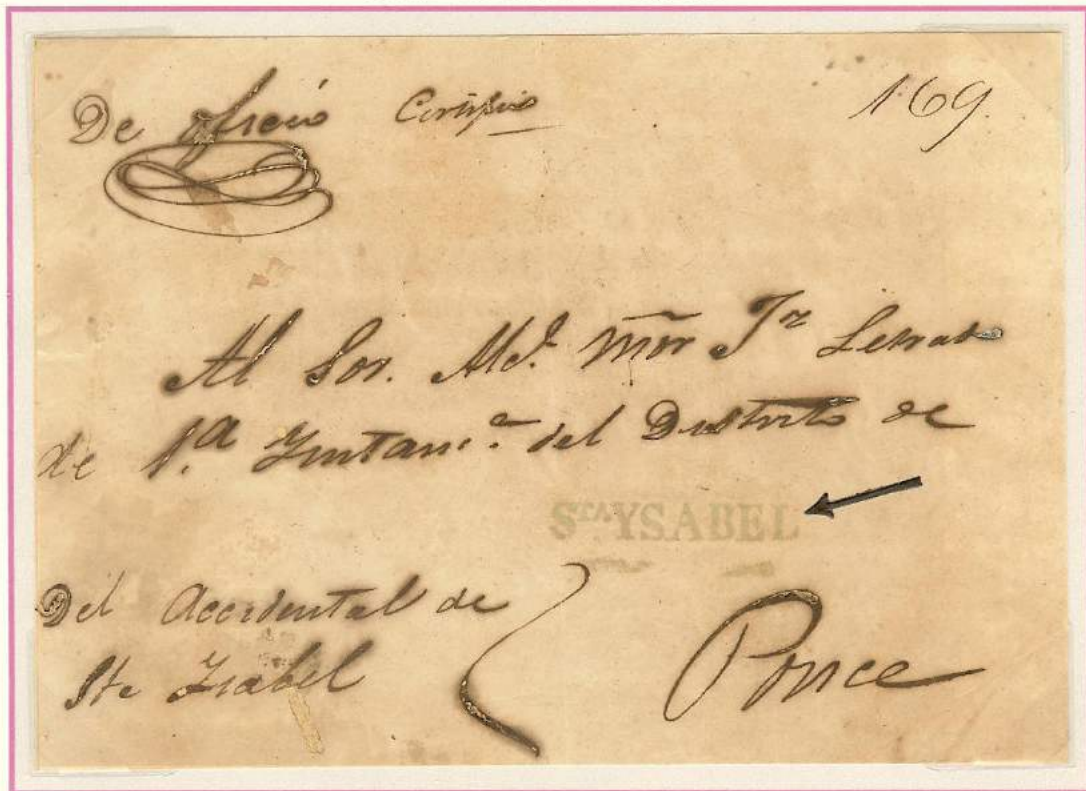 De oficio Certifico 169.
Al Sor. Ald. Mõr Jz Letrado
de 1.ª Yntanc.ª del Distrito de
Sta YSABEL
Del Accidental de
Sta Isabel
Ponce